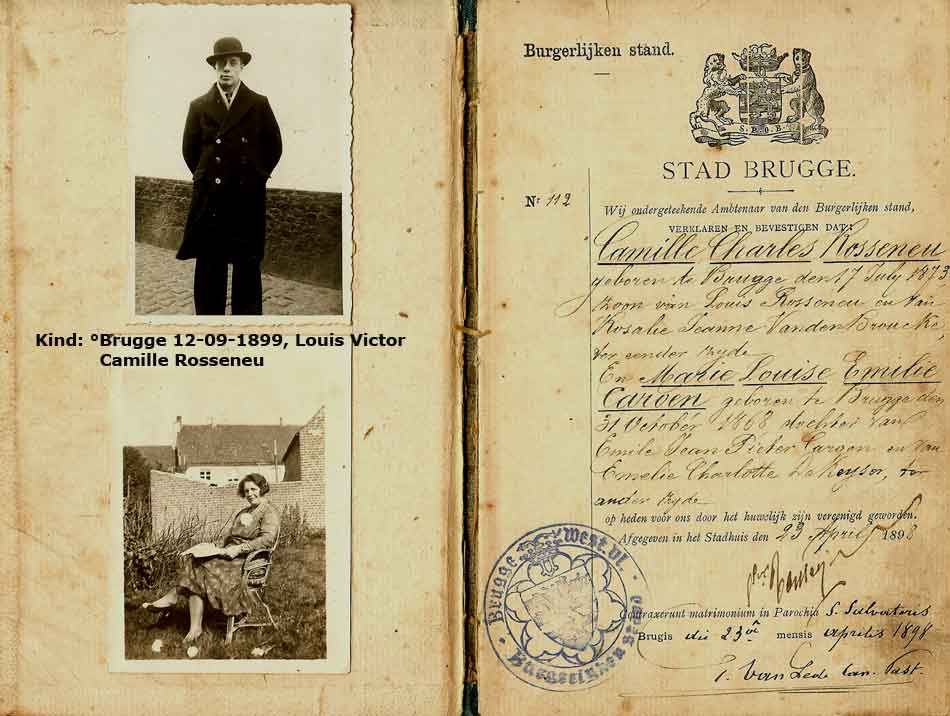 Kind: °Brugge 12-09-1899, Louis Victor
Camille Rosseneu
Burgerlijken stand.
S.P.Q.B.
STAD BRUGGE.
Nr 112
Wij ondergeteekende Ambtenaar van den Burgerlijken stand,
VERKLAREN EN BEVESTIGEN DAT:
Camille Charles Rosseneu
geboren te Brugge den 17 July 1873
zoon van Louis Rosseneu en van
Rosalie Jeanne VandenBroucke,
ter eender zyde
En Marie Louise Emilie
Caroen geboren te Brugge den
31 October 1868 dochter van
Emile Jean Pieter Caroen en van
Emelie Charlotte DeKeyser, ter
ander zyde
op heden voor ons door het huwelijk zijn vereenigd geworden.
Afgegeven in het Stadhuis den 23 April 1898
Brugge West.vl.
Burgerlijken Stand
Contraxerunt matrimonium in Parochia S. Salvatoris
Brugis die 23a mensis aprilis 1898
Van Lede can. Past.